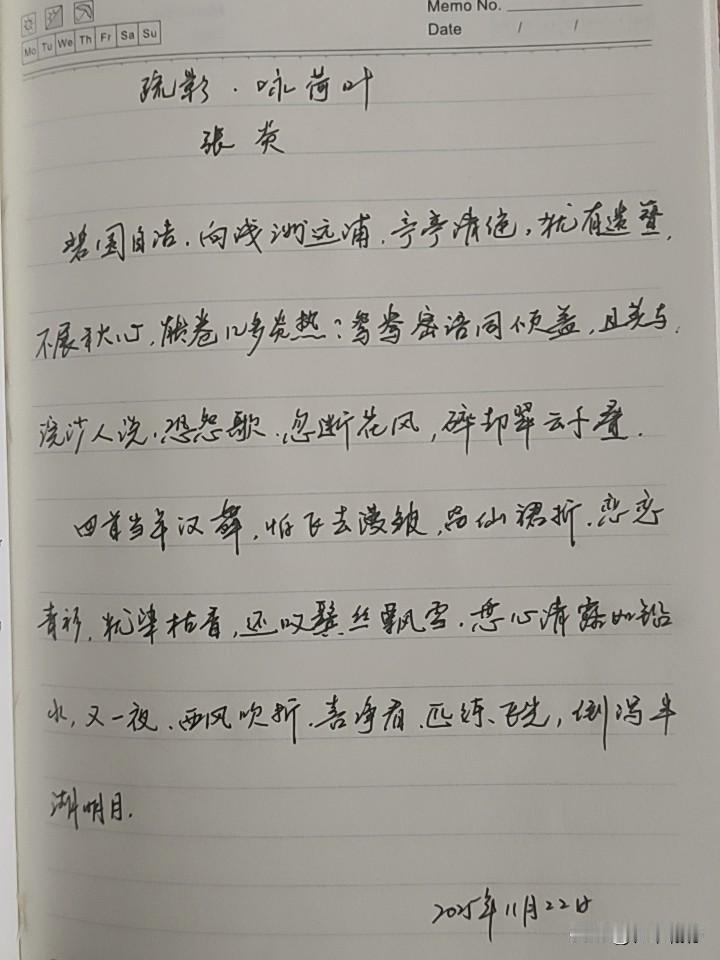 Memo No.
Mo Tu We Th Fr Sa Su
Date / /
疏影·咏荷叶
张炎
碧圆自洁，向浅洲远浦，亭亭清绝，犹有遗簪，
不展秋心，能卷几多炎热？鸳鸯密语同倾盖，且莫与，
浣沙人说，恐怨歌，忽断花风，碎却翠云千叠。
回首当年汉舞，怕飞去漫皱，留仙裙折，恋恋
青衫，犹染枯香，还叹鬓丝飘雪，盘心清露如铅
水，又一夜，西风吹折，喜净看，匹练飞光，倒泻半
湖明月。
2025年11月22日